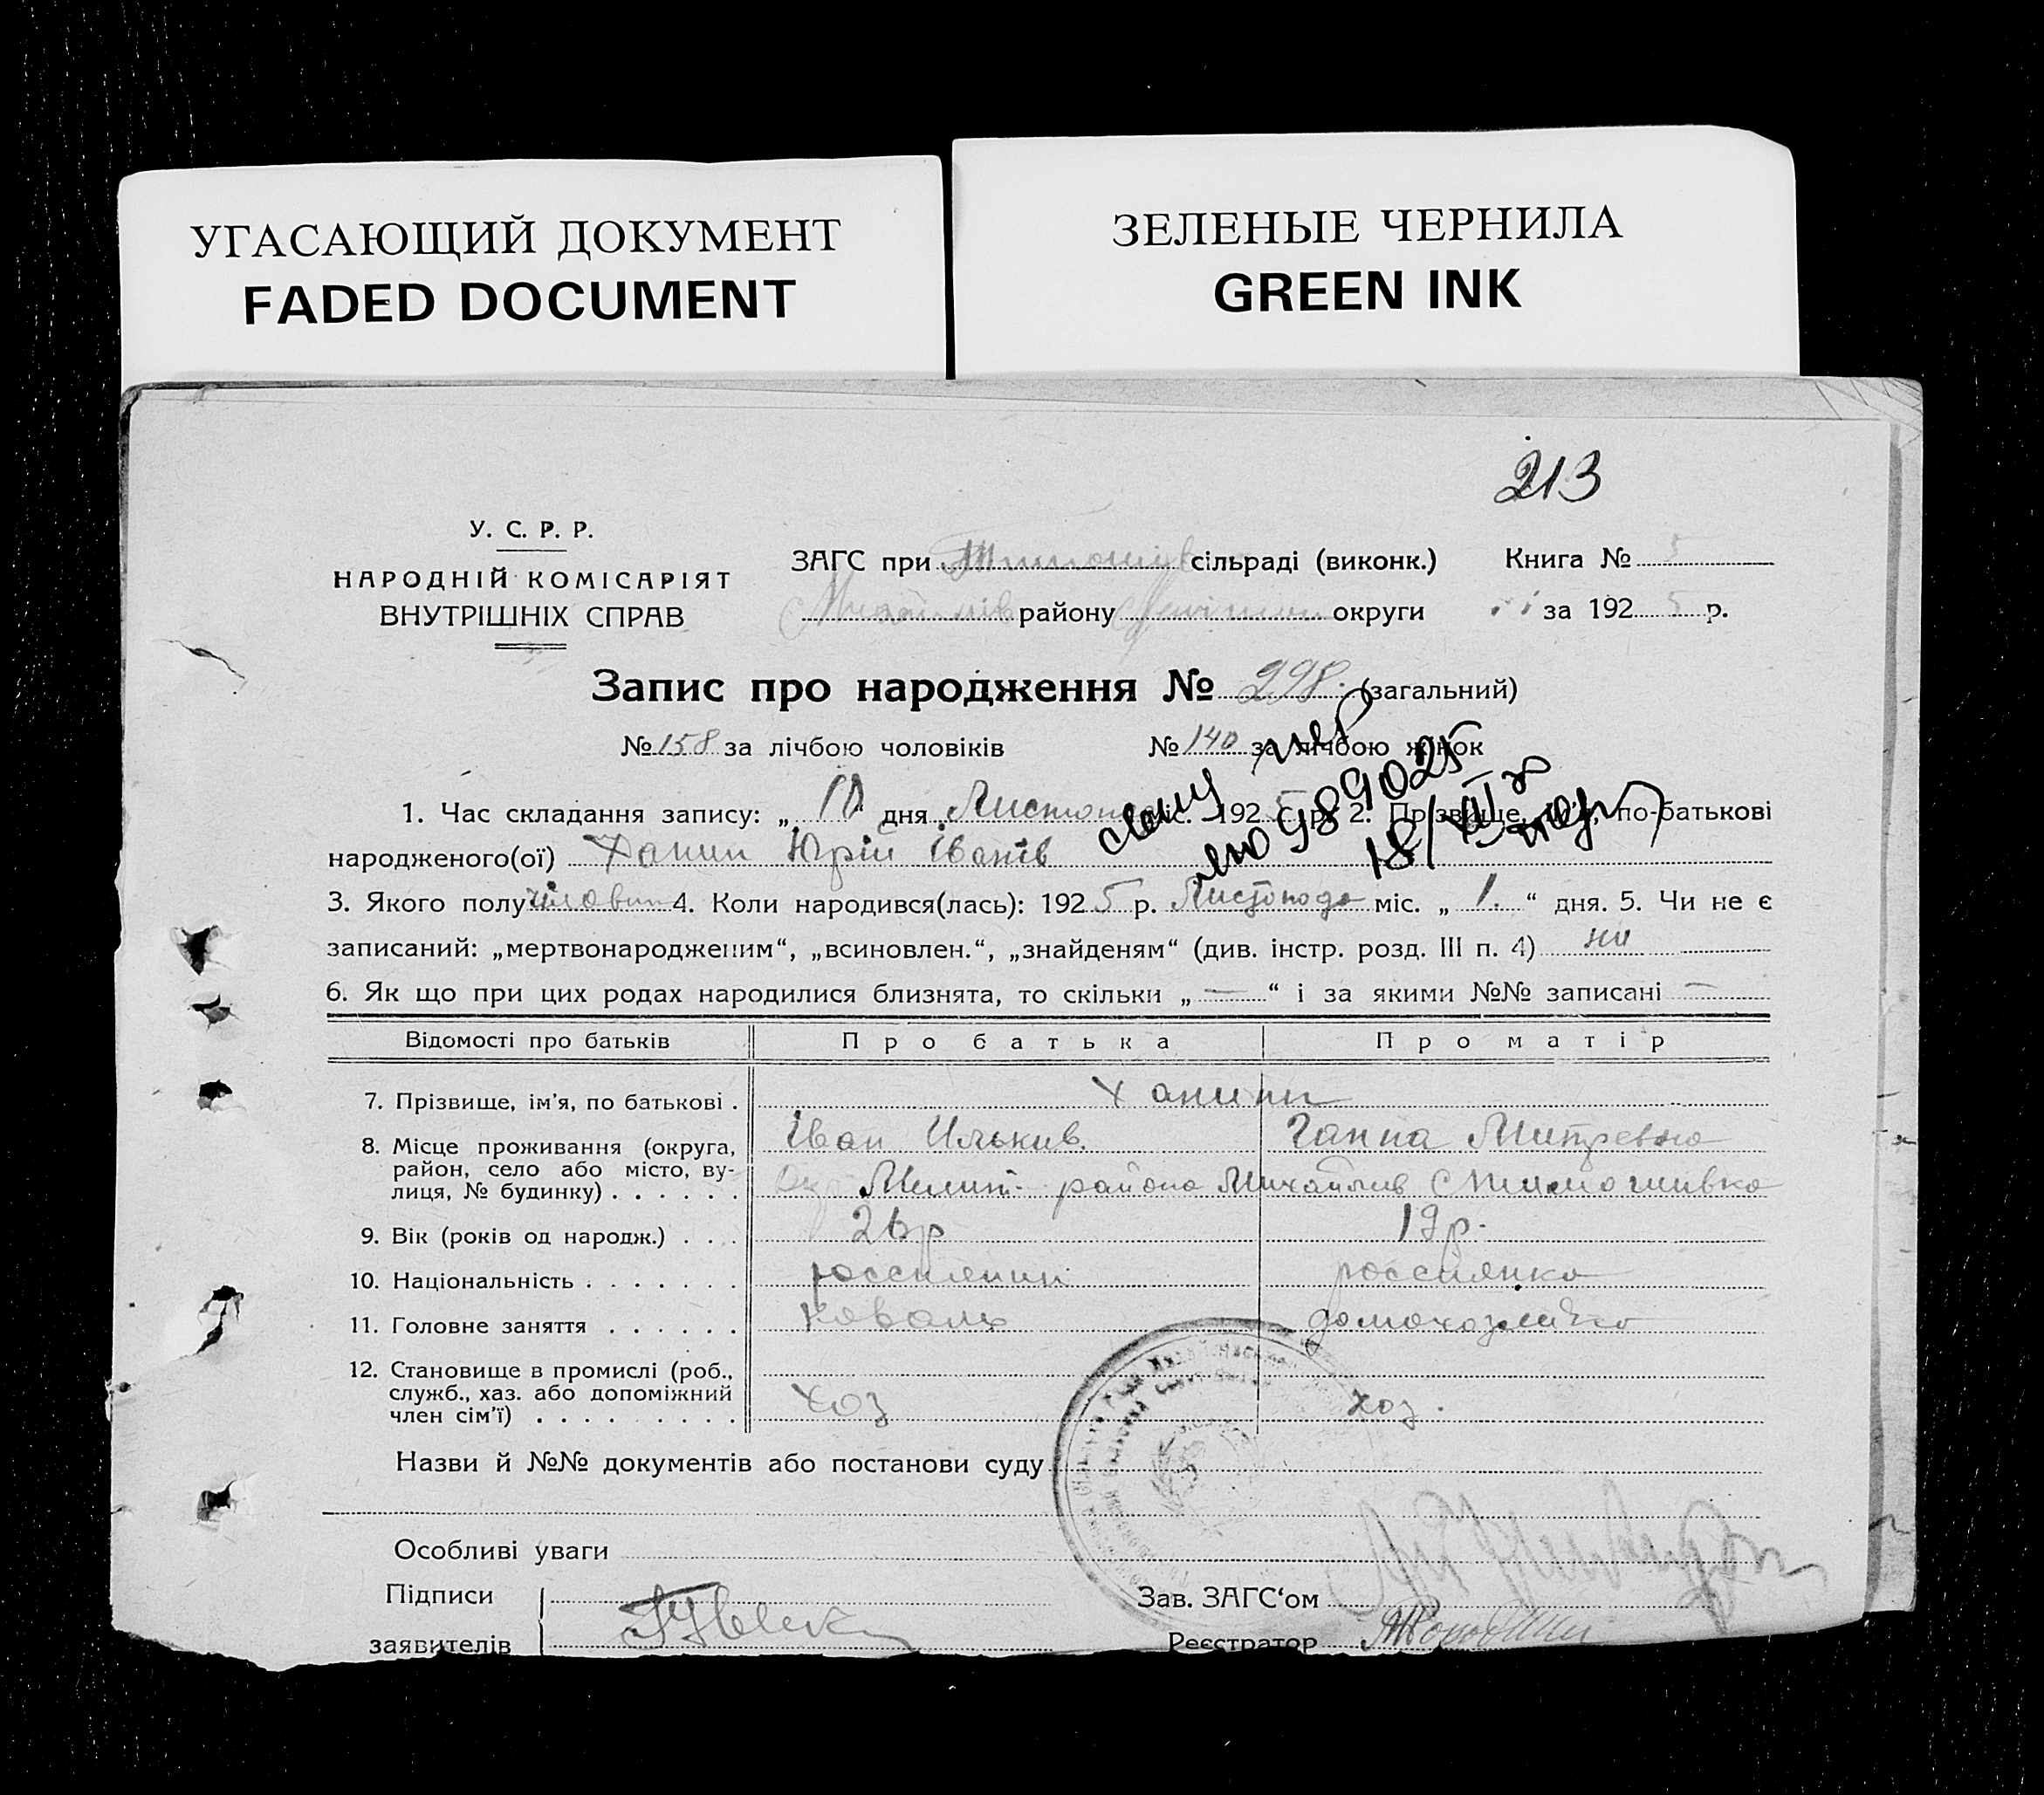 УГАСАЮЩИЙ ДОКУМЕНТ
FADED DOCUMENT
ЗЕЛЕНЫЕ ЧЕРНИЛА
GREEN INK
213
У. С. Р. Р.
НАРОДНІЙ КОМІСАРІЯТ
ВНУТРІШНІХ СПРАВ
ЗАГС при сільраді (виконк.) Книга № 5
району округи за 1925 р.
Запис про народження № 298. (загальний)
№ 158 за лічбою чоловіків № 140 за лічбою жінок
1. Час складання запису: „ 10 " дня Листопа міс. 1925 р. 2. Прізвище, ім'я, по-батькові
народженого(ої) Ханин Юрій Іванів
989025
18/VII
3. Якого полу 4. Коли народився(лась): 1925 р. Листопада міс. „ 1. “ дня. 5. Чи не є
записаний: „мертвонародженим“, „всиновлен.“, „знайденям“ (див. інстр. розд. III п. 4) ни
6. Як що при цих родах народилися близнята, то скільки „ — “ і за якими №№ записані —
Відомості про батьків Про батька Про матір
7. Прізвище, ім’я, по батькові . Ханини
Іван Илькив. Ганна Митревна
8. Місце проживання (округа, район, село або місто, ву-
лиця, № будинку) . . . . . . Мелит. района Михайлив
9. Вік (років од народж.) . . . 26р 19р.
10. Національність . . . . . . . россиянин россиянка
11. Головне заняття . . . . . . коваль домохозяйка
12. Становище в промислі (роб.,
служб., хаз. або допоміжний
член сім’ї) . . . . . . . . . Хоз Хоз.
Назви й №№ документів або постанови суду
Особливі уваги
Підписи
заявителів
Зав. ЗАГС‘ом
Реєстратор